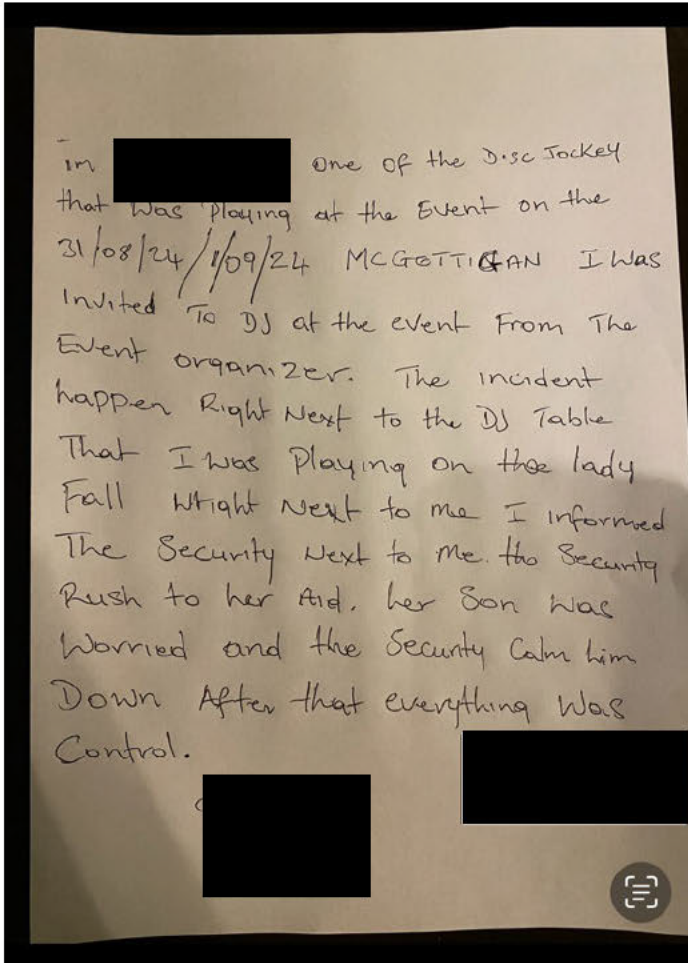 im one of the Disc Jockey
that was Playing at the Event on the
31/08/24/1/09/24 MCGETTIGAN I was
Invited To DJ at the event From The
Event organizer. The incident
happen Right Next to the DJ Table
That I was Playing on the lady
Fall Wright Next to me I informed
The Security Next to Me. the Security
Rush to her Aid. her Son was
Worried and the Security Calm him
Down After that everything Was
Control.